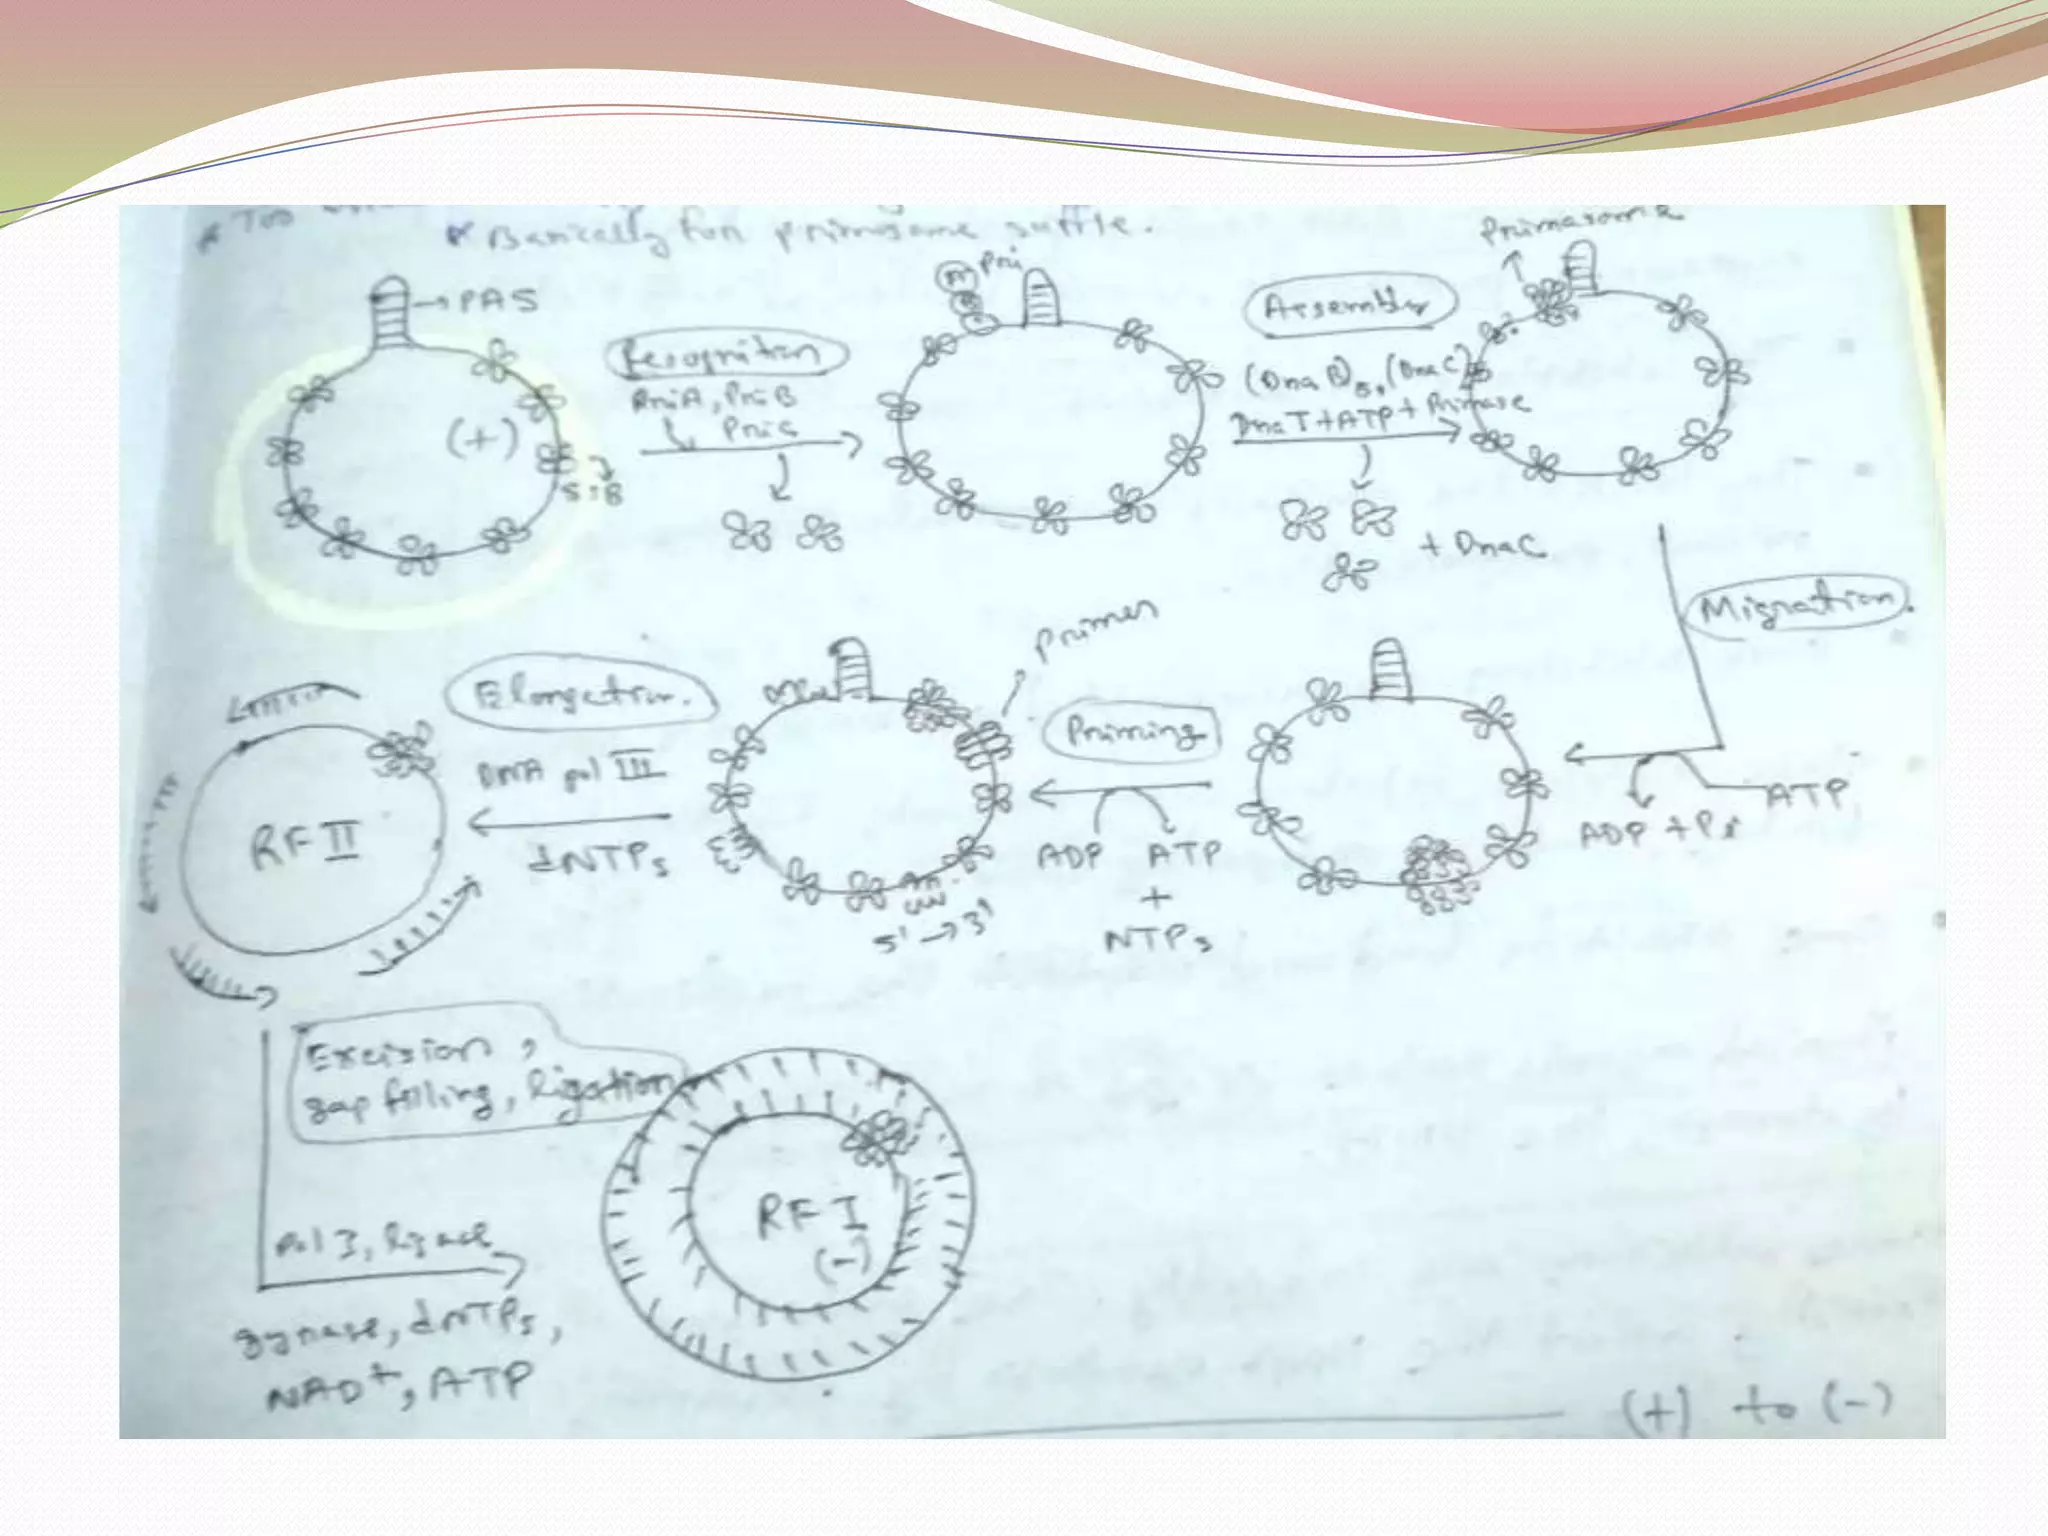 * Too
* Basically for primosome suffle.
Primasome
PAS
Pri
Recognition
PriA, PriB
PriC
Assembly
(Dna B)6, (Dna C)6
Dna T + ATP + Primase
(+)
SSB
+ DnaC
Migration.
ATP
ADP + Pi
Primer
Priming
ADP ATP
+
NTPs
5' → 3'
Elongation.
DNA pol III
dNTPs
RF II
Excision,
gap filling, ligation
Pol I, ligase
gyrase, dNTPs,
NAD+, ATP
RF I
(-)
(+) to (-)